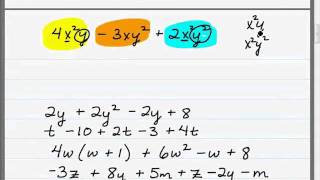 4x²y - 3xy² + 2x²y²
x²y
x²y²
2y + 2y² - 2y + 8
t - 10 + 2t - 3 + 4t
4w(w + 1) + 6w² - w + 8
-3z + 8y + 5m + z - 2y - m